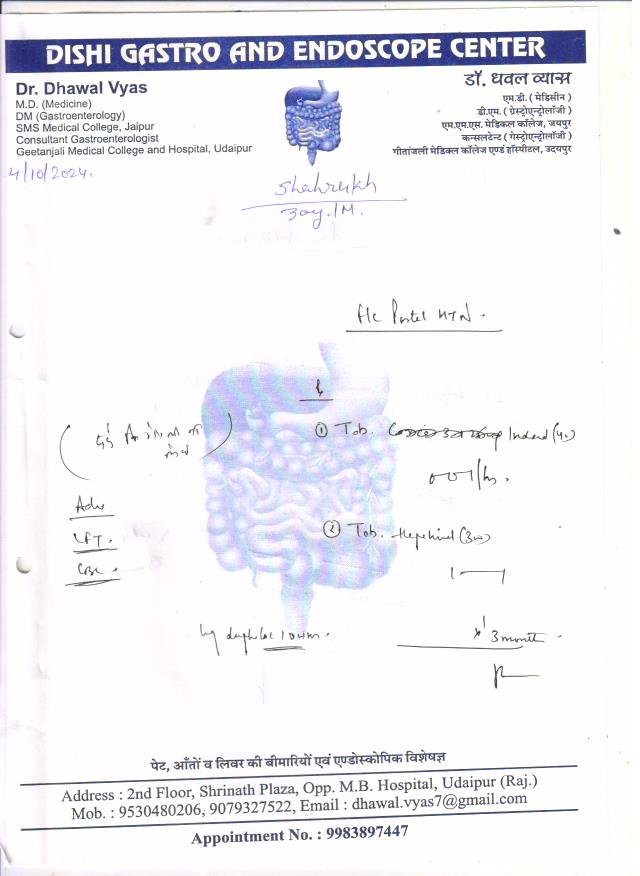 DISHI GASTRO AND ENDOSCOPE CENTER
Dr. Dhawal Vyas
M.D. (Medicine)
DM (Gastroenterology)
SMS Medical College, Jaipur
Consultant Gastroenterologist
Geetanjali Medical College and Hospital, Udaipur
डॉ. धवल व्यास
एम.डी. ( मेडिसीन )
डी.एम. ( ग्रेस्ट्रोएन्ट्रोलॉजी )
एम.एम.एस. मेडिकल कॉलेज, जयपुर
कन्सलटेन्ट ( गेस्ट्रोएन्ट्रोलॉजी )
गीतांजली मेडिकल कॉलेज एण्ड हॉस्पीटल, उदयपुर
4/10/2024.
Shahrukh
30y./M.
HTN.
① Tab.
001/hs.
Adv
LFT.
CBC.
② Tab.
1
x 3 month
पेट, आँतों व लिवर की बीमारियों एवं एण्डोस्कोपिक विशेषज्ञ
Address : 2nd Floor, Shrinath Plaza, Opp. M.B. Hospital, Udaipur (Raj.)
Mob. : 9530480206, 9079327522, Email : dhawal.vyas7@gmail.com
Appointment No. : 9983897447